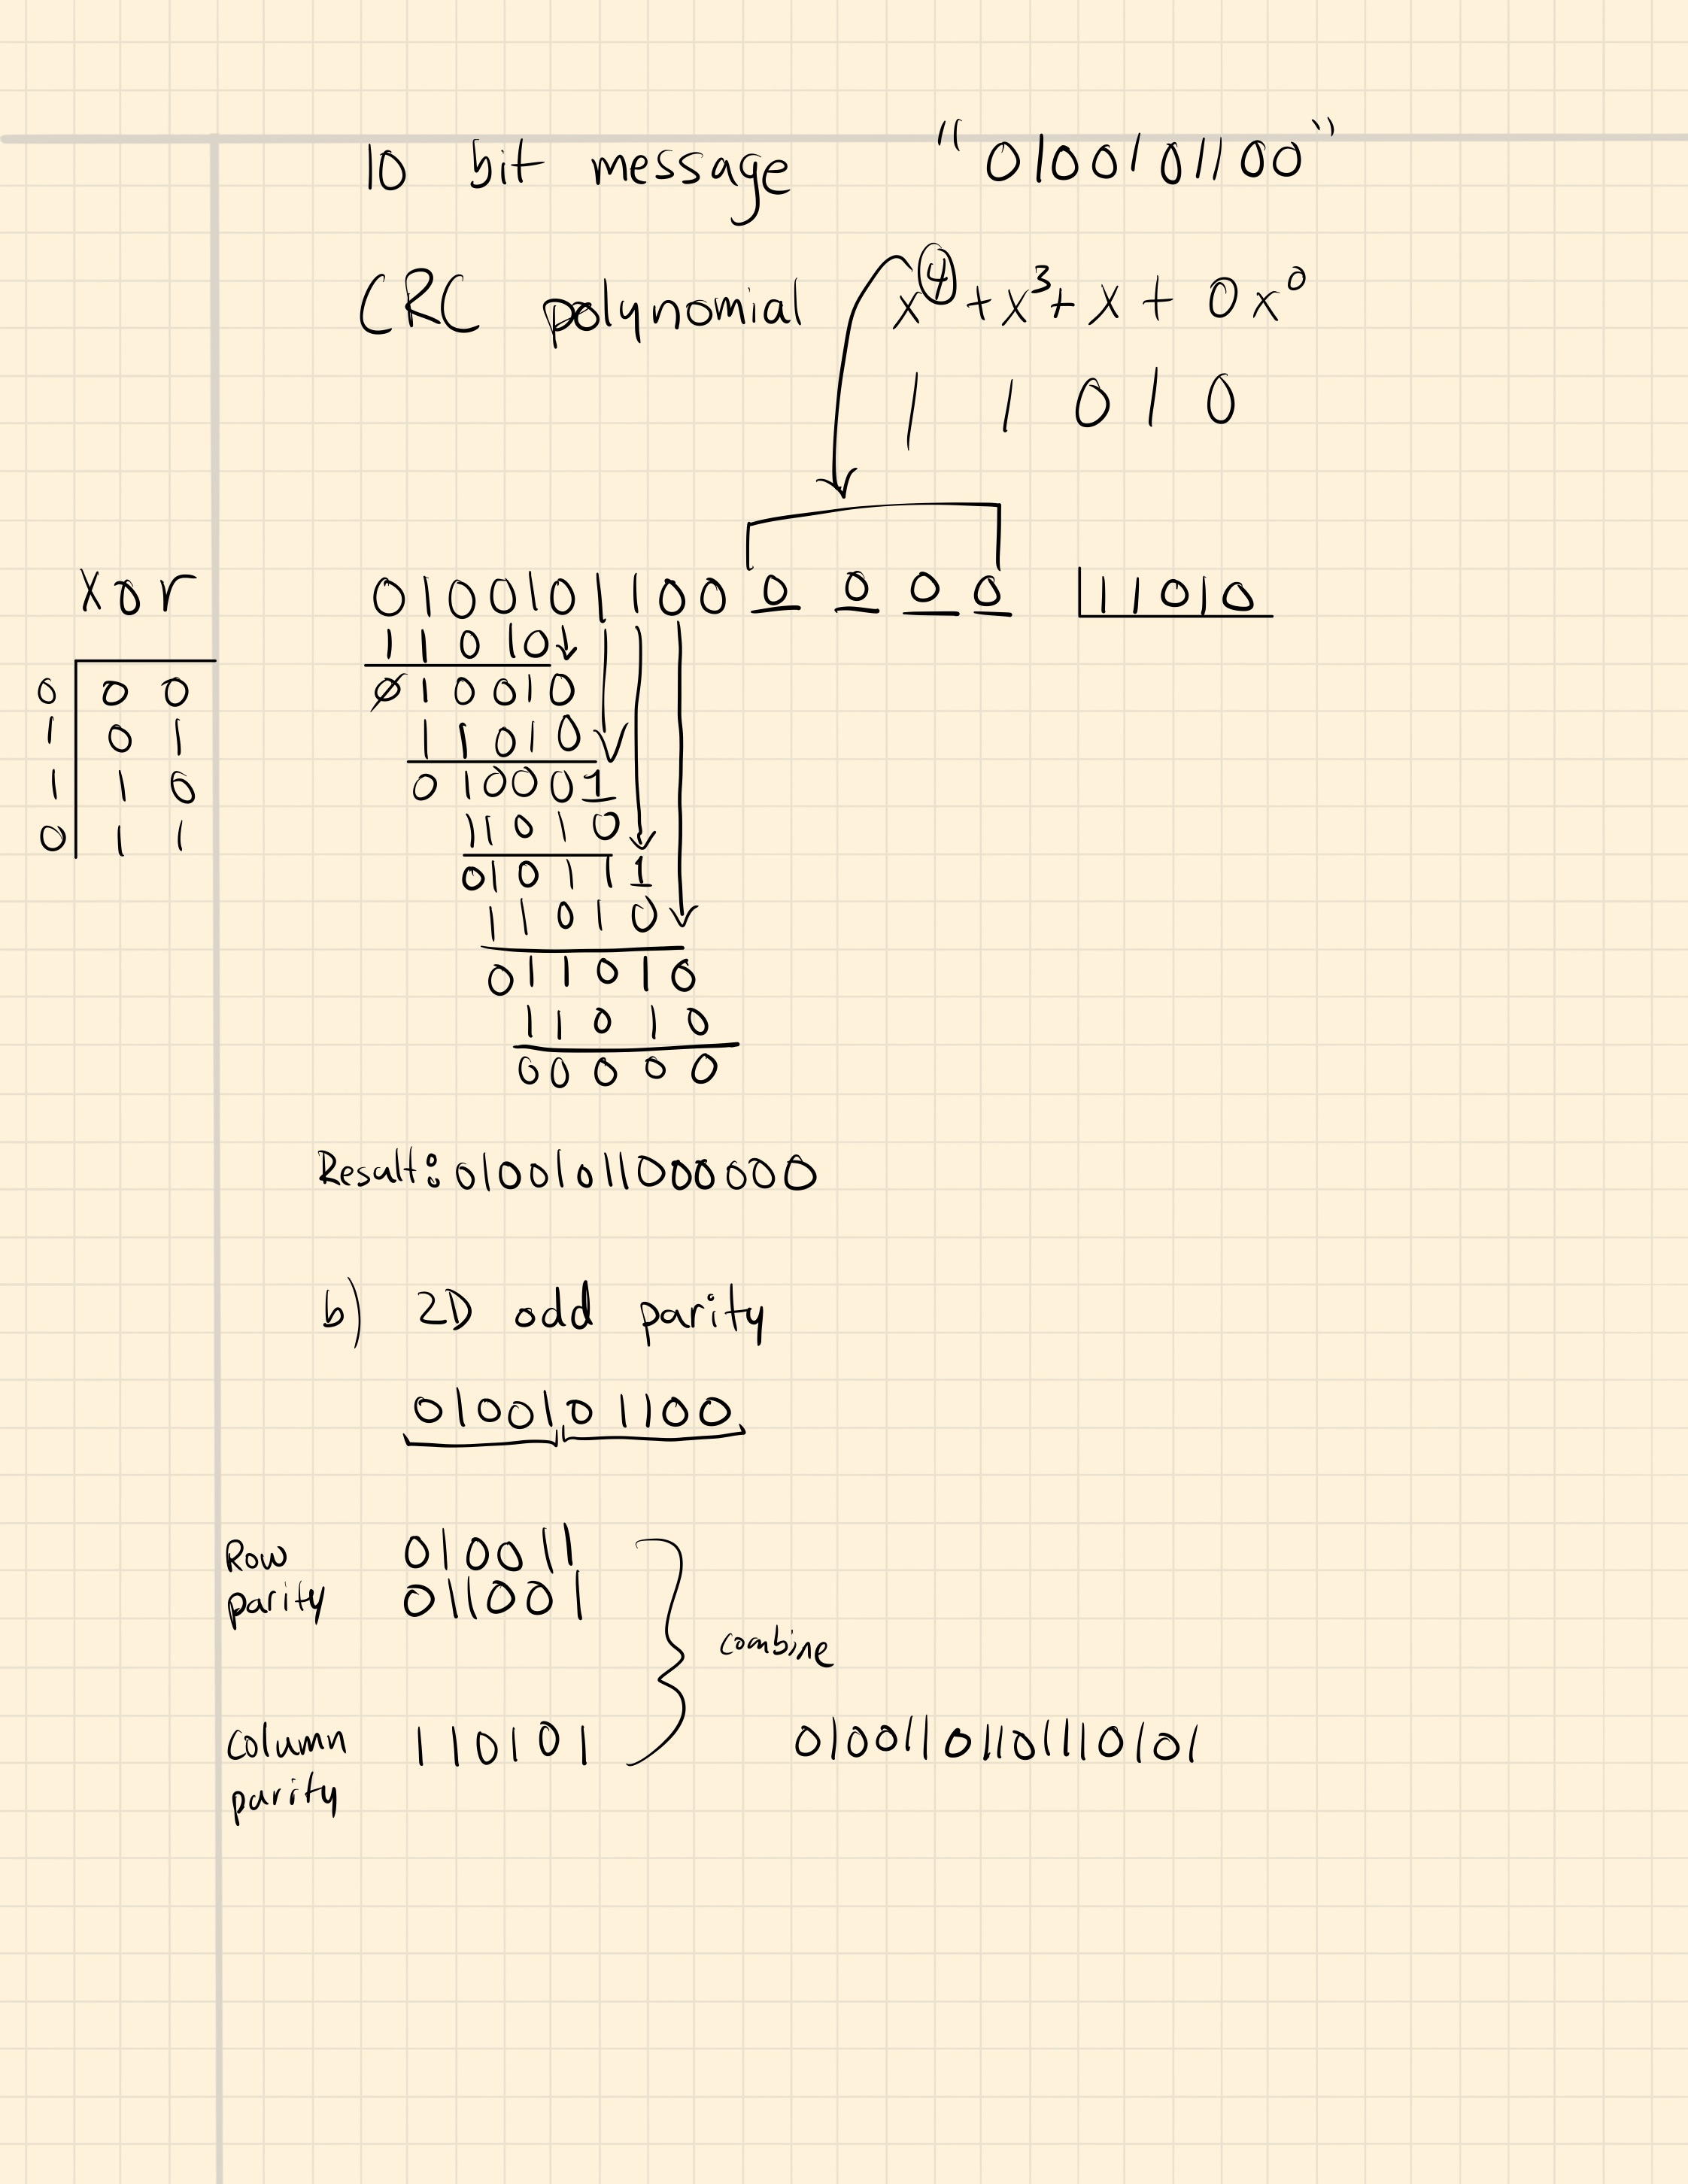 10 bit message "0100101100"
CRC polynomial x⁴ + x³ + x + 0x⁰
1 1 0 1 0
Xor
0 0 0
1 0 1
1 1 0
0 1 1
0100101100 0 0 0 0 11010
11010
010010
11010
010001
11010
010111
11010
011010
11010
00000
Result: 01001011000000
b) 2D odd parity
0100101100
Row 010011
parity 011001
combine
Column 110101 010011011011110101
parity